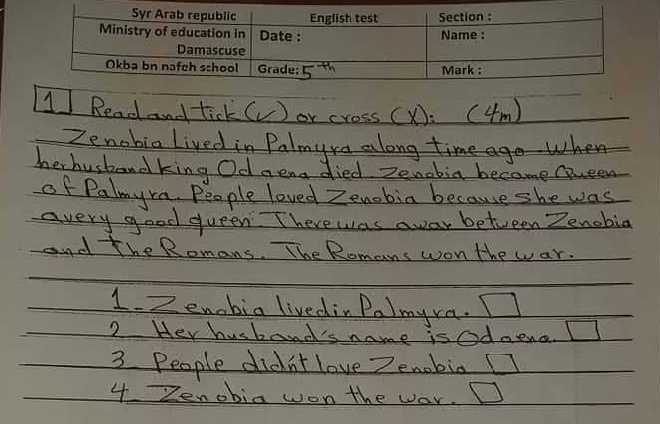 Syr Arab republic English test Section :
Ministry of education in Damascuse Date : Name :
Okba bn nafeh school Grade: 5th Mark :
1 Read and tick (✓) or cross (X): (4m)
Zenobia Lived in Palmyra along time ago. When
her husband king Odaena died. Zenobia became Queen
of Palmyra. People loved Zenobia because she was
a very good queen. There was a war between Zenobia
and The Romans. The Romans won the war.
1- Zenobia lived in Palmyra. ☐
2- Her husband's name is Odaena. ☐
3- People didn't love Zenobia ☐
4- Zenobia won the war. ☐